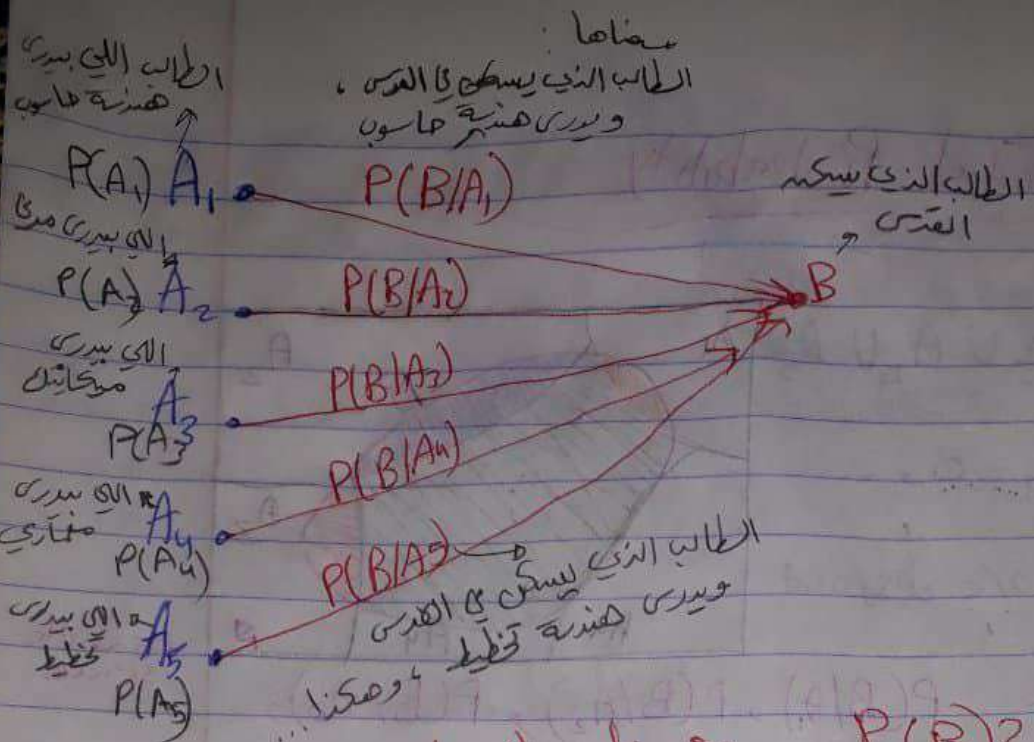 معناها :
الطالب الذي يسكن في القدس ،
ويدرس هندسة حاسوب
الطالب اللي بيدرس
هندسة حاسوب
P(A₁) A₁
P(B/A₁)
الطالب الذي يسكن
القدس
B
اللي بيدرس مدني
P(A₂) A₂
P(B/A₂)
اللي بيدرس
ميكانيك
A₃
P(A₃)
P(B/A₃)
اللي بيدرس
معماري
A₄
P(A₄)
P(B/A₄)
اللي بيدرس
تخطيط
A₅
P(A₅)
P(B/A₅)
الطالب الذي يسكن في القدس
ويدرس هندسة تخطيط ، وهكذا..
P(B)?